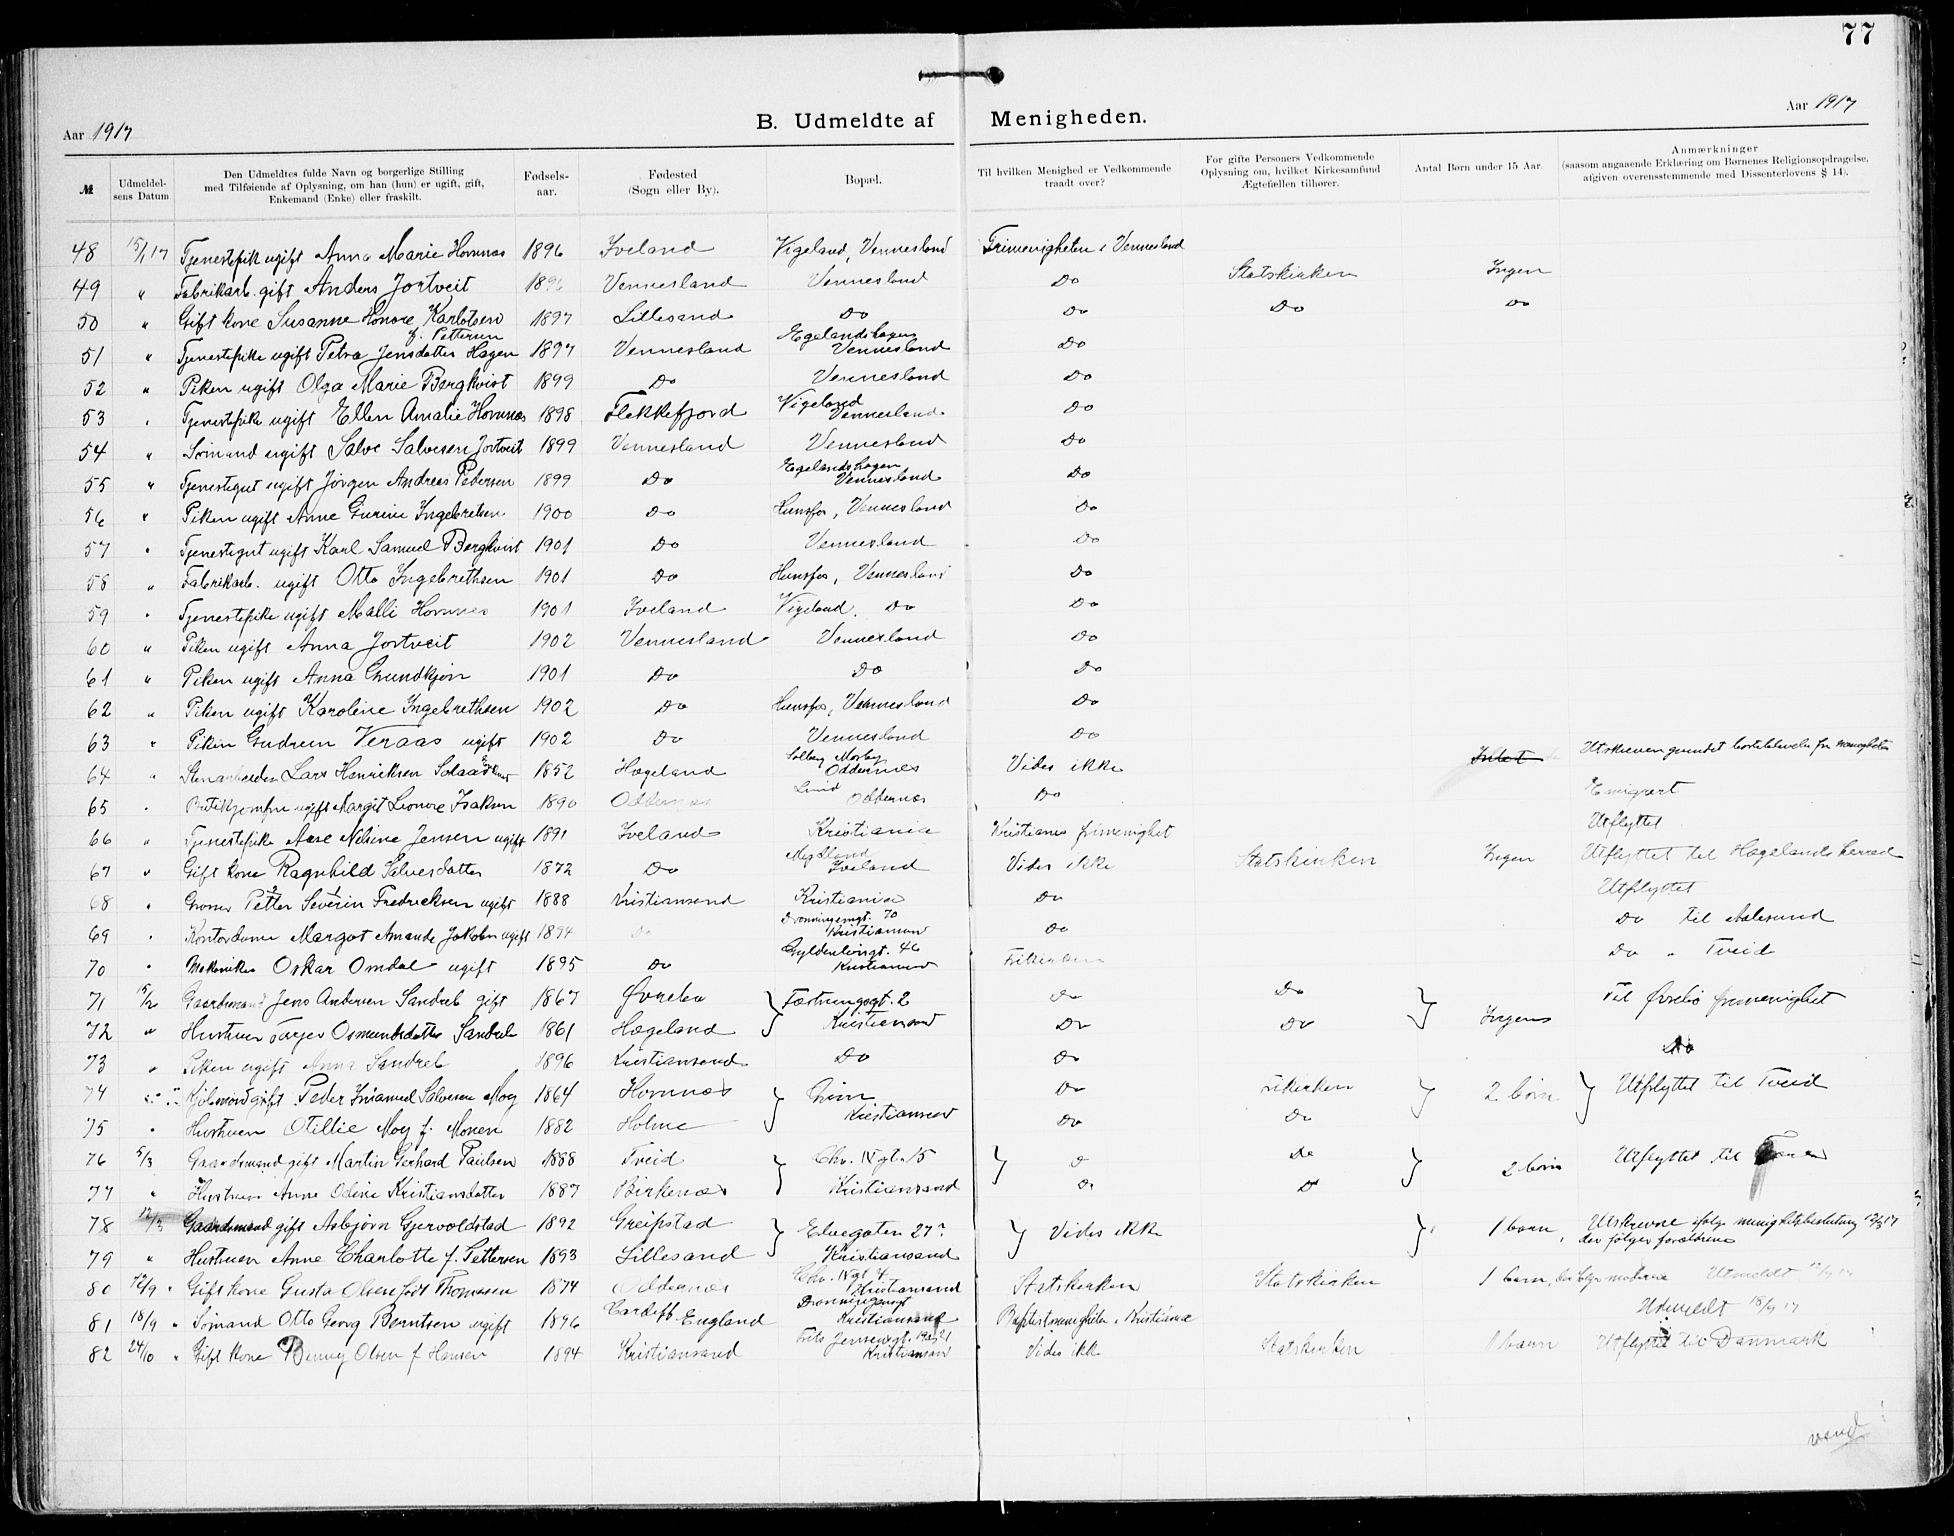 77
Aar 1917 B. Udmeldte af Menigheden. Aar 1917
№ Udmeldelsens Datum Den Udmeldtes fulde Navn og borgerlige Stilling med Tilføiende af Oplysning, om han (hun) er ugift, gift, Enkemand (Enke) eller fraskilt. Fødselsaar. Fødested (Sogn eller By). Bopæl. Til hvilken Menighed er Vedkommende traadt over? For gifte Personers Vedkommende Oplysning om, hvilket Kirkesamfund Ægtefællen tilhører. Antal Børn under 15 Aar. Anmærkninger (saasom angaaende Erklæring om Børnenes Religionsopdragelse, afgiven overensstemmende med Dissenterlovens § 14).
48 15/1 17 Tjenestepik ugift Anna Marie Hornnes 1896 Iveland Vigeland, Vennesland Frimenigheten i Vennesland
49 " Fabrikarb. gift Anders Jortveit 1896 Vennesland Vennesland Do Statskirken Ingen
50 " Gift kone Susanne Honore Karlotsen f. Pettersen 1897 Lillesand Do Do Do Do
51 " Tjenestepike ugift Petra Jensdatter Hagen 1897 Vennesland Egelandshagen Vennesland Do
52 " Piken ugift Olga Marie Bergkvist 1899 Do Vennesland Do
53 " Tjenestpike ugift Ellen Amalie Hornnes 1898 Flekkefjord Vigeland Vennesland Do
54 " Sømand ugift Salve Salvesen Jortveit 1899 Vennesland Vennesland Do
55 " Tjenestgut ugift Jørgen Andreas Pedersen 1899 Do Egelandshagen Vennesland Do
56 " Piken ugift Anne Gurine Ingebretsen 1900 Do Hunsfos, Vennesland Do
57 " Tjenestegut ugift Karl Samuel Bergkvist 1901 Do Vennesland Do
58 " Fabrikarb. ugift Otto Ingebrethsen 1901 Do Hunsfos, Vennesland Do
59 " Tjenestepike ugift Malli Hornnes 1901 Iveland Vigeland. Do Do
60 " Piken ugift Anna Jortveit 1902 Vennesland Vennesland Do
61 " Piken ugift Anna Grundkjøn 1901 Do Do Do
62 " Piken ugift Karoline Ingebrethsen 1902 Do Hunsfos, Vennesland Do
63 " Piken Gudrun Veraas ugift 1902 Do Vennesland Do
64 " Stenarbeider Lars Henriksen Solaas 1852 Hægeland Solberg Mosby Oddernes Vides ikke Utskreven grundet borteblivelse fra menigheten
65 " Butikjomfru ugift Margit Leonore Isaksen 1890 Oddernes Lund Oddernes Do Emigrert
66 " Tjenestepike Aase Neline Jensen ugift 1891 Iveland Kristiania Kristiania frimenighet Utflyttet
67 " Gift kone Ragnhild Salvesdatter 1872 Do Iveland Vides ikke Statskirken Ingen Utflyttet til Hægelands herred
68 " Petter Severin Fredriksen ugift 1888 Kristiansand Kristiania Do Utflyttet
69 " Kontordame Margot Amanda Jakobsen ugift 1894 Do Dronningensgt. 70 Kristiansand Do Do til Aalesund
70 " Mekaniker Oskar Omdal ugift 1895 Do Gyldenløvsgt. 46 Kristiansand Frikirken Do " Tveid
71 15/2 Gaardmand Jens Andersen Sandreb gift 1867 Øvrebø } Fæstningsgt. 2 Kristiansand Do Do } Ingen Til Øvrebø frimenighet
72 " Hustruen Torjer Osmundsdatter Sandreb 1861 Hægeland Do Do
73 " Piken ugift Anna Sandreb 1896 Kristiansand Do Do Do
74 " gift Peder Imanuel Salvesen Moy 1864 Hornnes } Grim Kristiansand Do Frikirken } 2 børn } Utflyttet til Tveid
75 " Hustruen Otillie Moy f. Monen 1882 Holme Do Do
76 5/3 Gaardsmand gift Martin Gerhard Paulsen 1888 Tveid } Chr. IV gt. 15 Kristiansand } Do Do } 2 børn Utflyttet til
77 " Hustruen Anne Odine Kristiansdatter 1887 Birkenes Do Do
78 12/3 Gaardsmand gift Asbjørn Gjervoldstad 1892 Greipstad } Elvegaten 27 Kristiansand } Vides ikke } 1 barn, Utskrevne ifølge menighetsbeslutning 12/3 17 der følger forældrene
79 " Hustruen Anne Charlotte f. Pettersen 1893 Lillesand
80 12/9 " Gift kone Gusta Olsen født Thomasen 1874 Oddernes Chr. IV gt 4 Kristiansand Statskirken Statskirken 1 barn, der følger moderen Utmeldt 12/9 17
81 18/9 " Sømand Otto Georg Berntsen ugift 1896 Cardiff. England Dronningensgt Kristiansand Baptistmenigheten i Kristiania Utmeldt 18/9 17
82 24/10 " Gift kone Benny Olsen f Hansen 1894 Kristiansand Frits Jensensgt. 19-21 Kristiansand Vides ikke Statskirken 1 barn Utflyttet til Danmark
vend